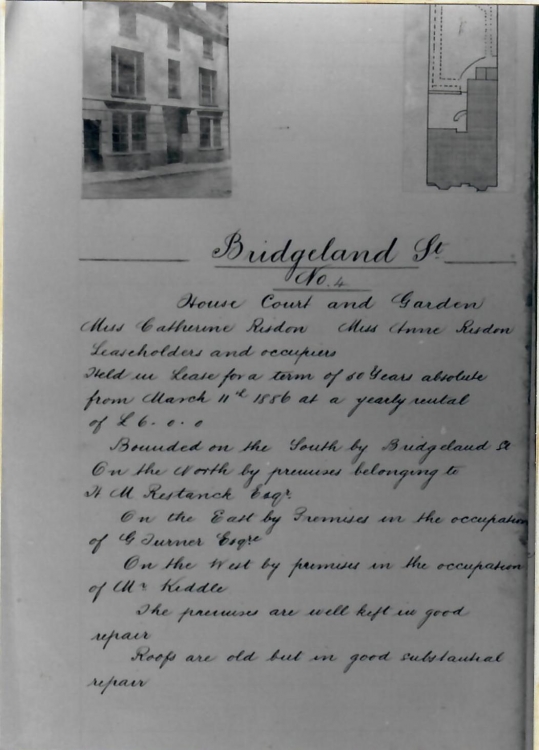 Bridgeland St
No. 4
House Court and Garden
Miss Catherine Risdon Miss Anne Risdon
Leaseholders and occupiers
Held in Lease for a term of 50 Years absolute
from March 11th 1886 at a yearly rental
of £ 6. 0. 0
Bounded on the South by Bridgeland St
On the North by premises belonging to
H M Restarick Esqr.
On the East by Premises in the occupation
of G Turner Esqre
On the West by premises in the occupation
of Mr Keddle
The premises are well kept in good
repair
Roofs are old but in good substantial
repair